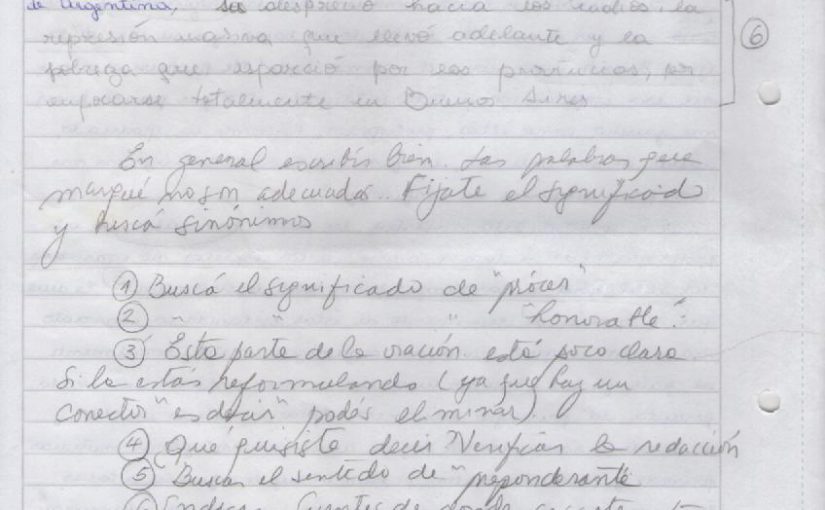 de Argentina, su desprecio hacia los indios, la
represión masiva que llevó adelante y la
que esparció por las provincias, por
enfocarse totalmente en Buenos Aires
6
En general escribís bien. Las palabras que
marqué no son adecuadas. Fijate el significado
y buscá sinónimos
① Buscá el significado de "prócer"
② " " " " "honorable".
③ Esta parte de la oración está poco clara
Si la estás reformulando (ya que hay un
conector "es decir" podés eliminar)
④ Qué quisiste decir? Verificar la redacción
⑤ Buscar el sentido de "preponderante
⑥ Indicar fuentes de donde